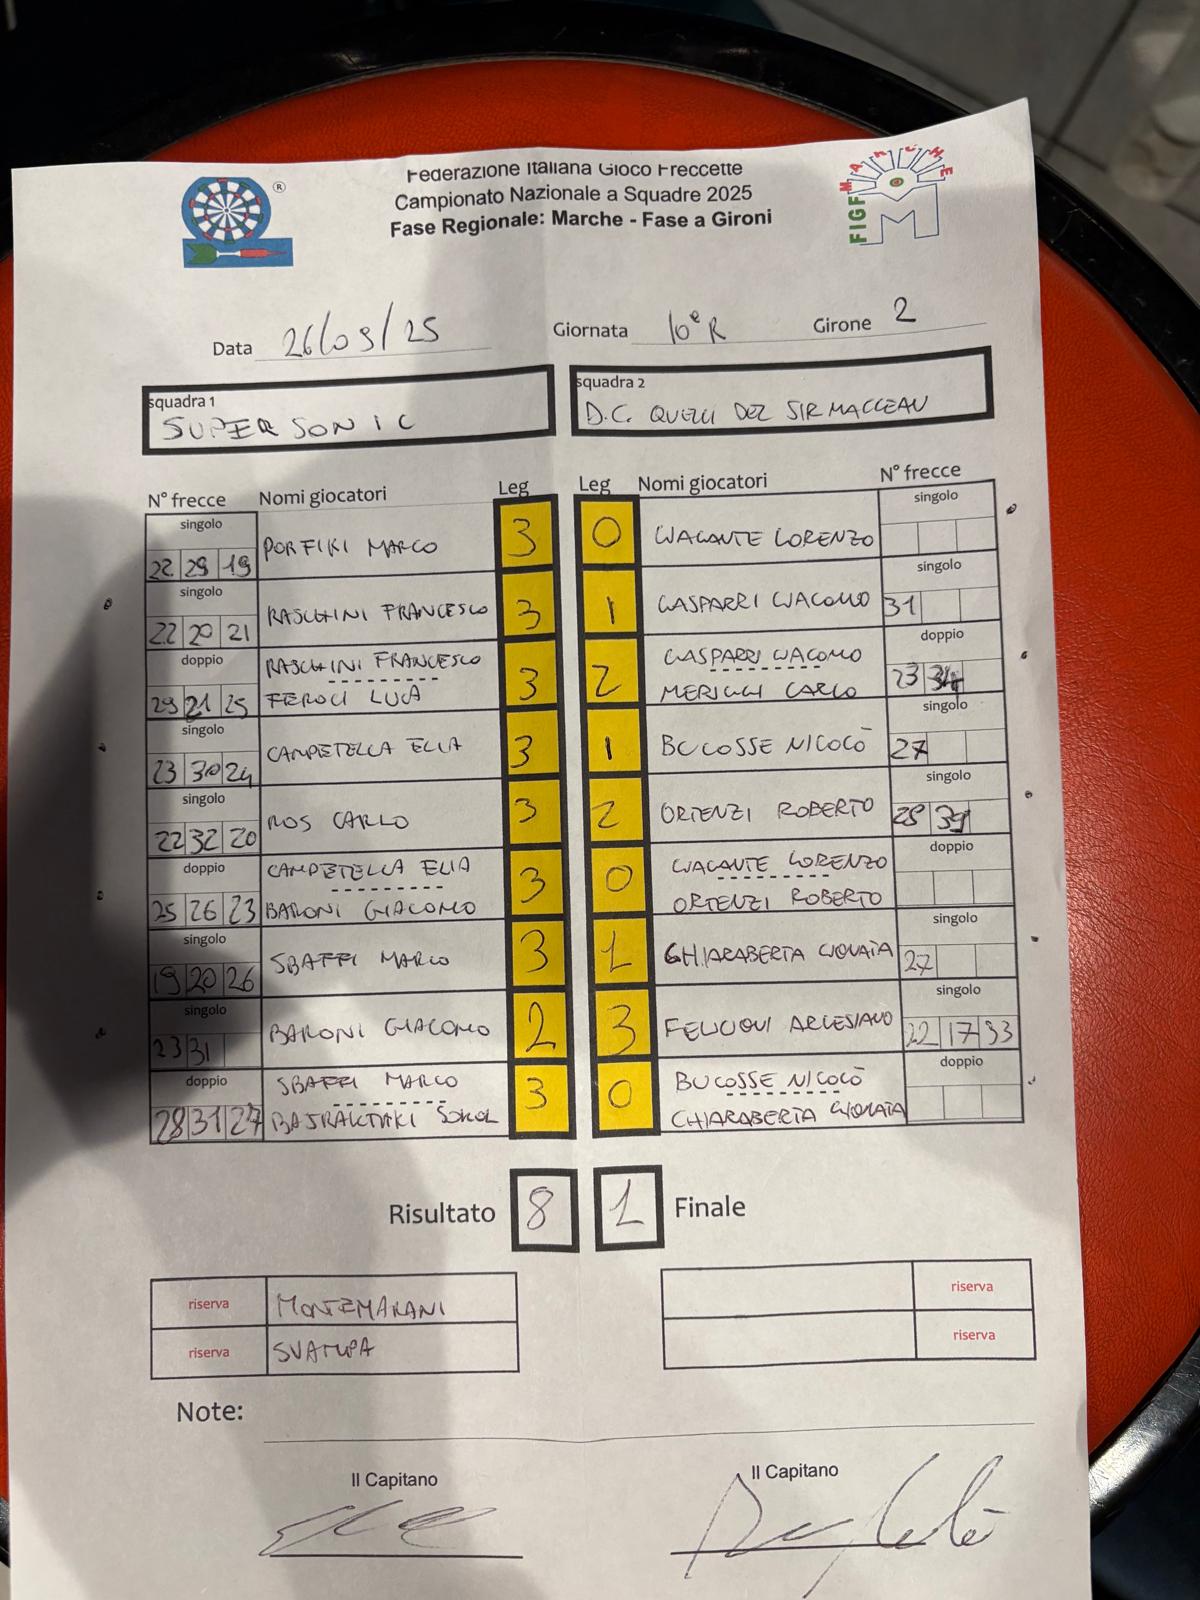 Federazione Italiana Gioco Freccette
Campionato Nazionale a Squadre 2025
Fase Regionale: Marche - Fase a Gironi
®
MARCHE
FIGF
Data 26/09/25 Giornata 10ª R Girone 2
squadra 1
SUPERSONIC
squadra 2
D.C. QUELLI DEL SIR MACLEAN
N° frecce Nomi giocatori Leg Leg Nomi giocatori N° frecce
singolo singolo
22 29 19 PORFIRI MARCO 3 0 GIACANTE LORENZO
singolo singolo
22 20 21 RASCHINI FRANCESCO 3 1 GASPARRI GIACOMO 31
doppio doppio
RASCHINI FRANCESCO GASPARRI GIACOMO
29 21 25 FEROCI LUCA 3 2 MERIGGI CARLO 23 34
singolo singolo
23 30 24 CAMPETELLA ELIA 3 1 BUCOSSE NICOLÒ 27
singolo singolo
22 32 20 ROS CARLO 3 2 ORTENZI ROBERTO 28 39
doppio doppio
CAMPETELLA ELIA GIACANTE LORENZO
25 26 23 BARONI GIACOMO 3 0 ORTENZI ROBERTO
singolo singolo
19 20 26 SBAFFI MARCO 3 1 CHIARABERTA GIONATA 27
singolo singolo
23 31 BARONI GIACOMO 2 3 22 17 33
doppio doppio
SBAFFI MARCO BUCOSSE NICOLÒ
28 31 27 BAJRAKTARI SOKOL 3 0 CHIARABERTA GIONATA
Risultato 8 1 Finale
riserva MONTEMARANI riserva
riserva riserva
Note:
Il Capitano Il Capitano